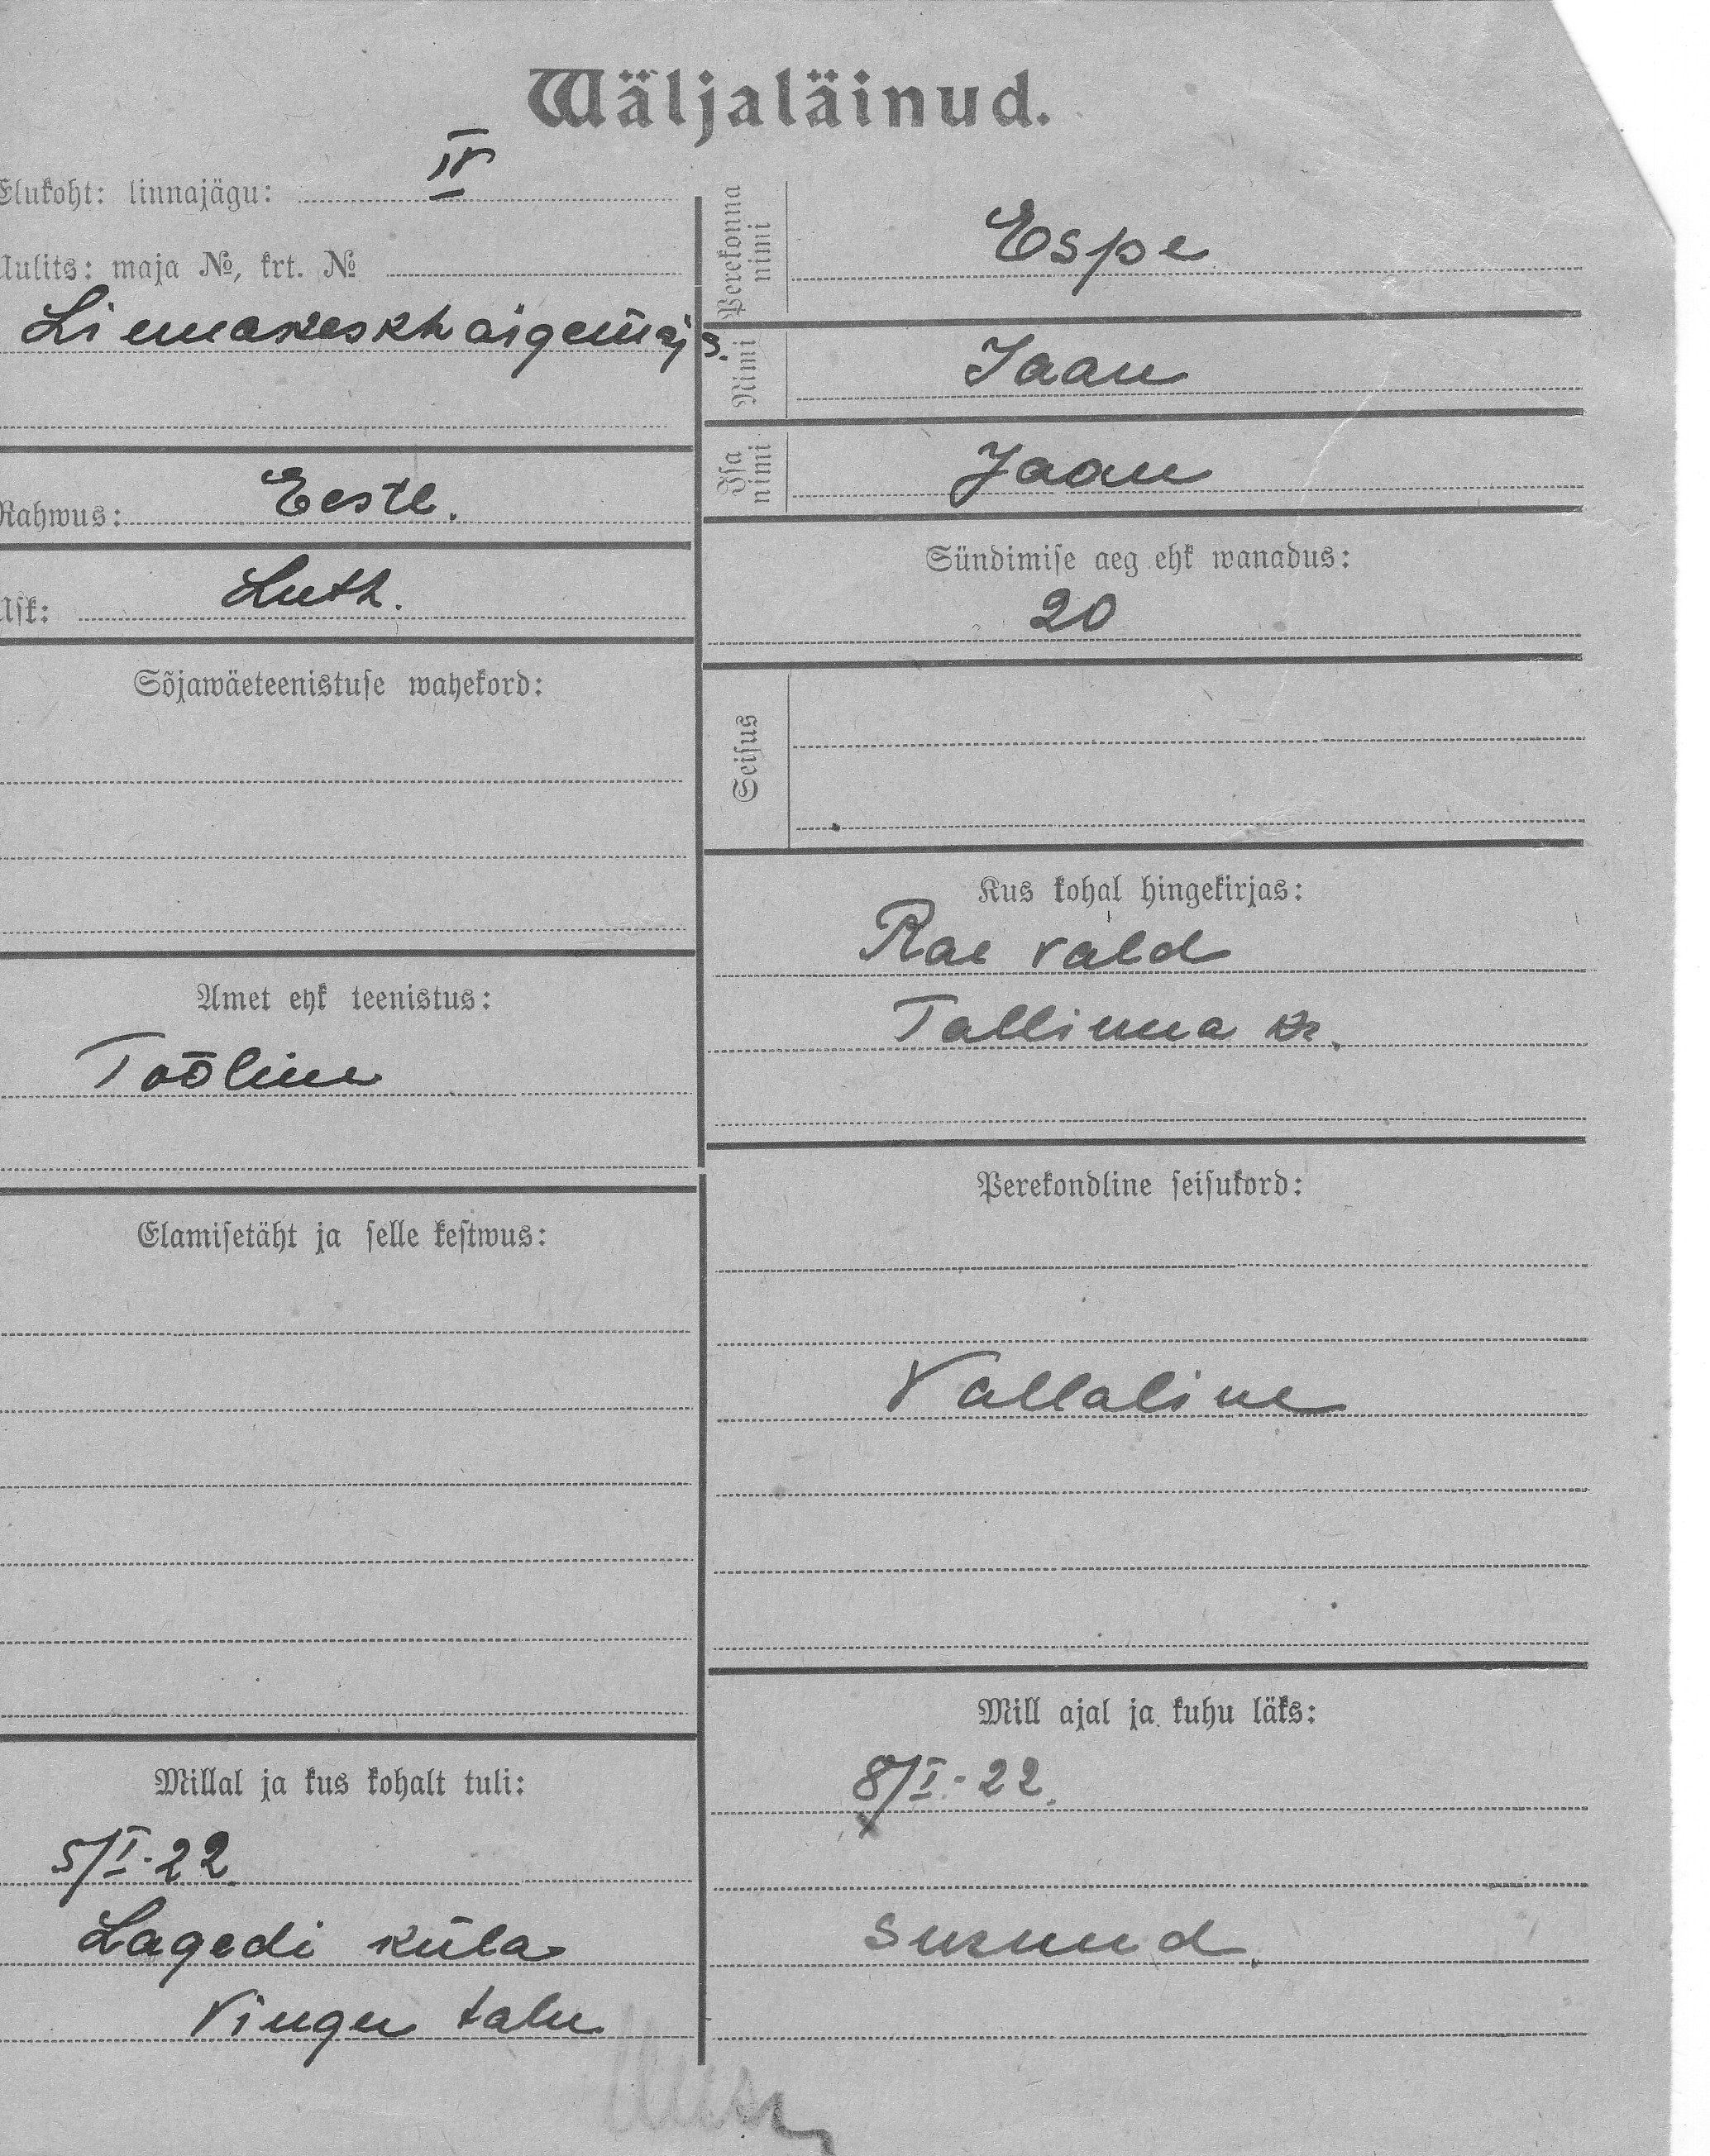 Wäljaläinud.
Elukoht: linnajägu: IV
Uulits: maja №, krt. №
Linnakeskhaigemajs.
Rahwus: Eestl.
Usk: Luth.
Sõjawäeteenistuse wahekord:
Amet ehk teenistus:
Tööline
Elamisetäht ja selle kestwus:
Millal ja kus kohalt tuli:
5/I-22.
Lagedi küla
Vingu talu
Perekonna nimi
Espe
Nimi
Jaan
Isa nimi
Jaan
Sündimise aeg ehk wanadus:
20
Seisus
Kus kohal hingekirjas:
Rae vald
Tallinna kr.
Perekondline seisukord:
Vallaline
Mill ajal ja kuhu läks:
8/I-22.
surnud.